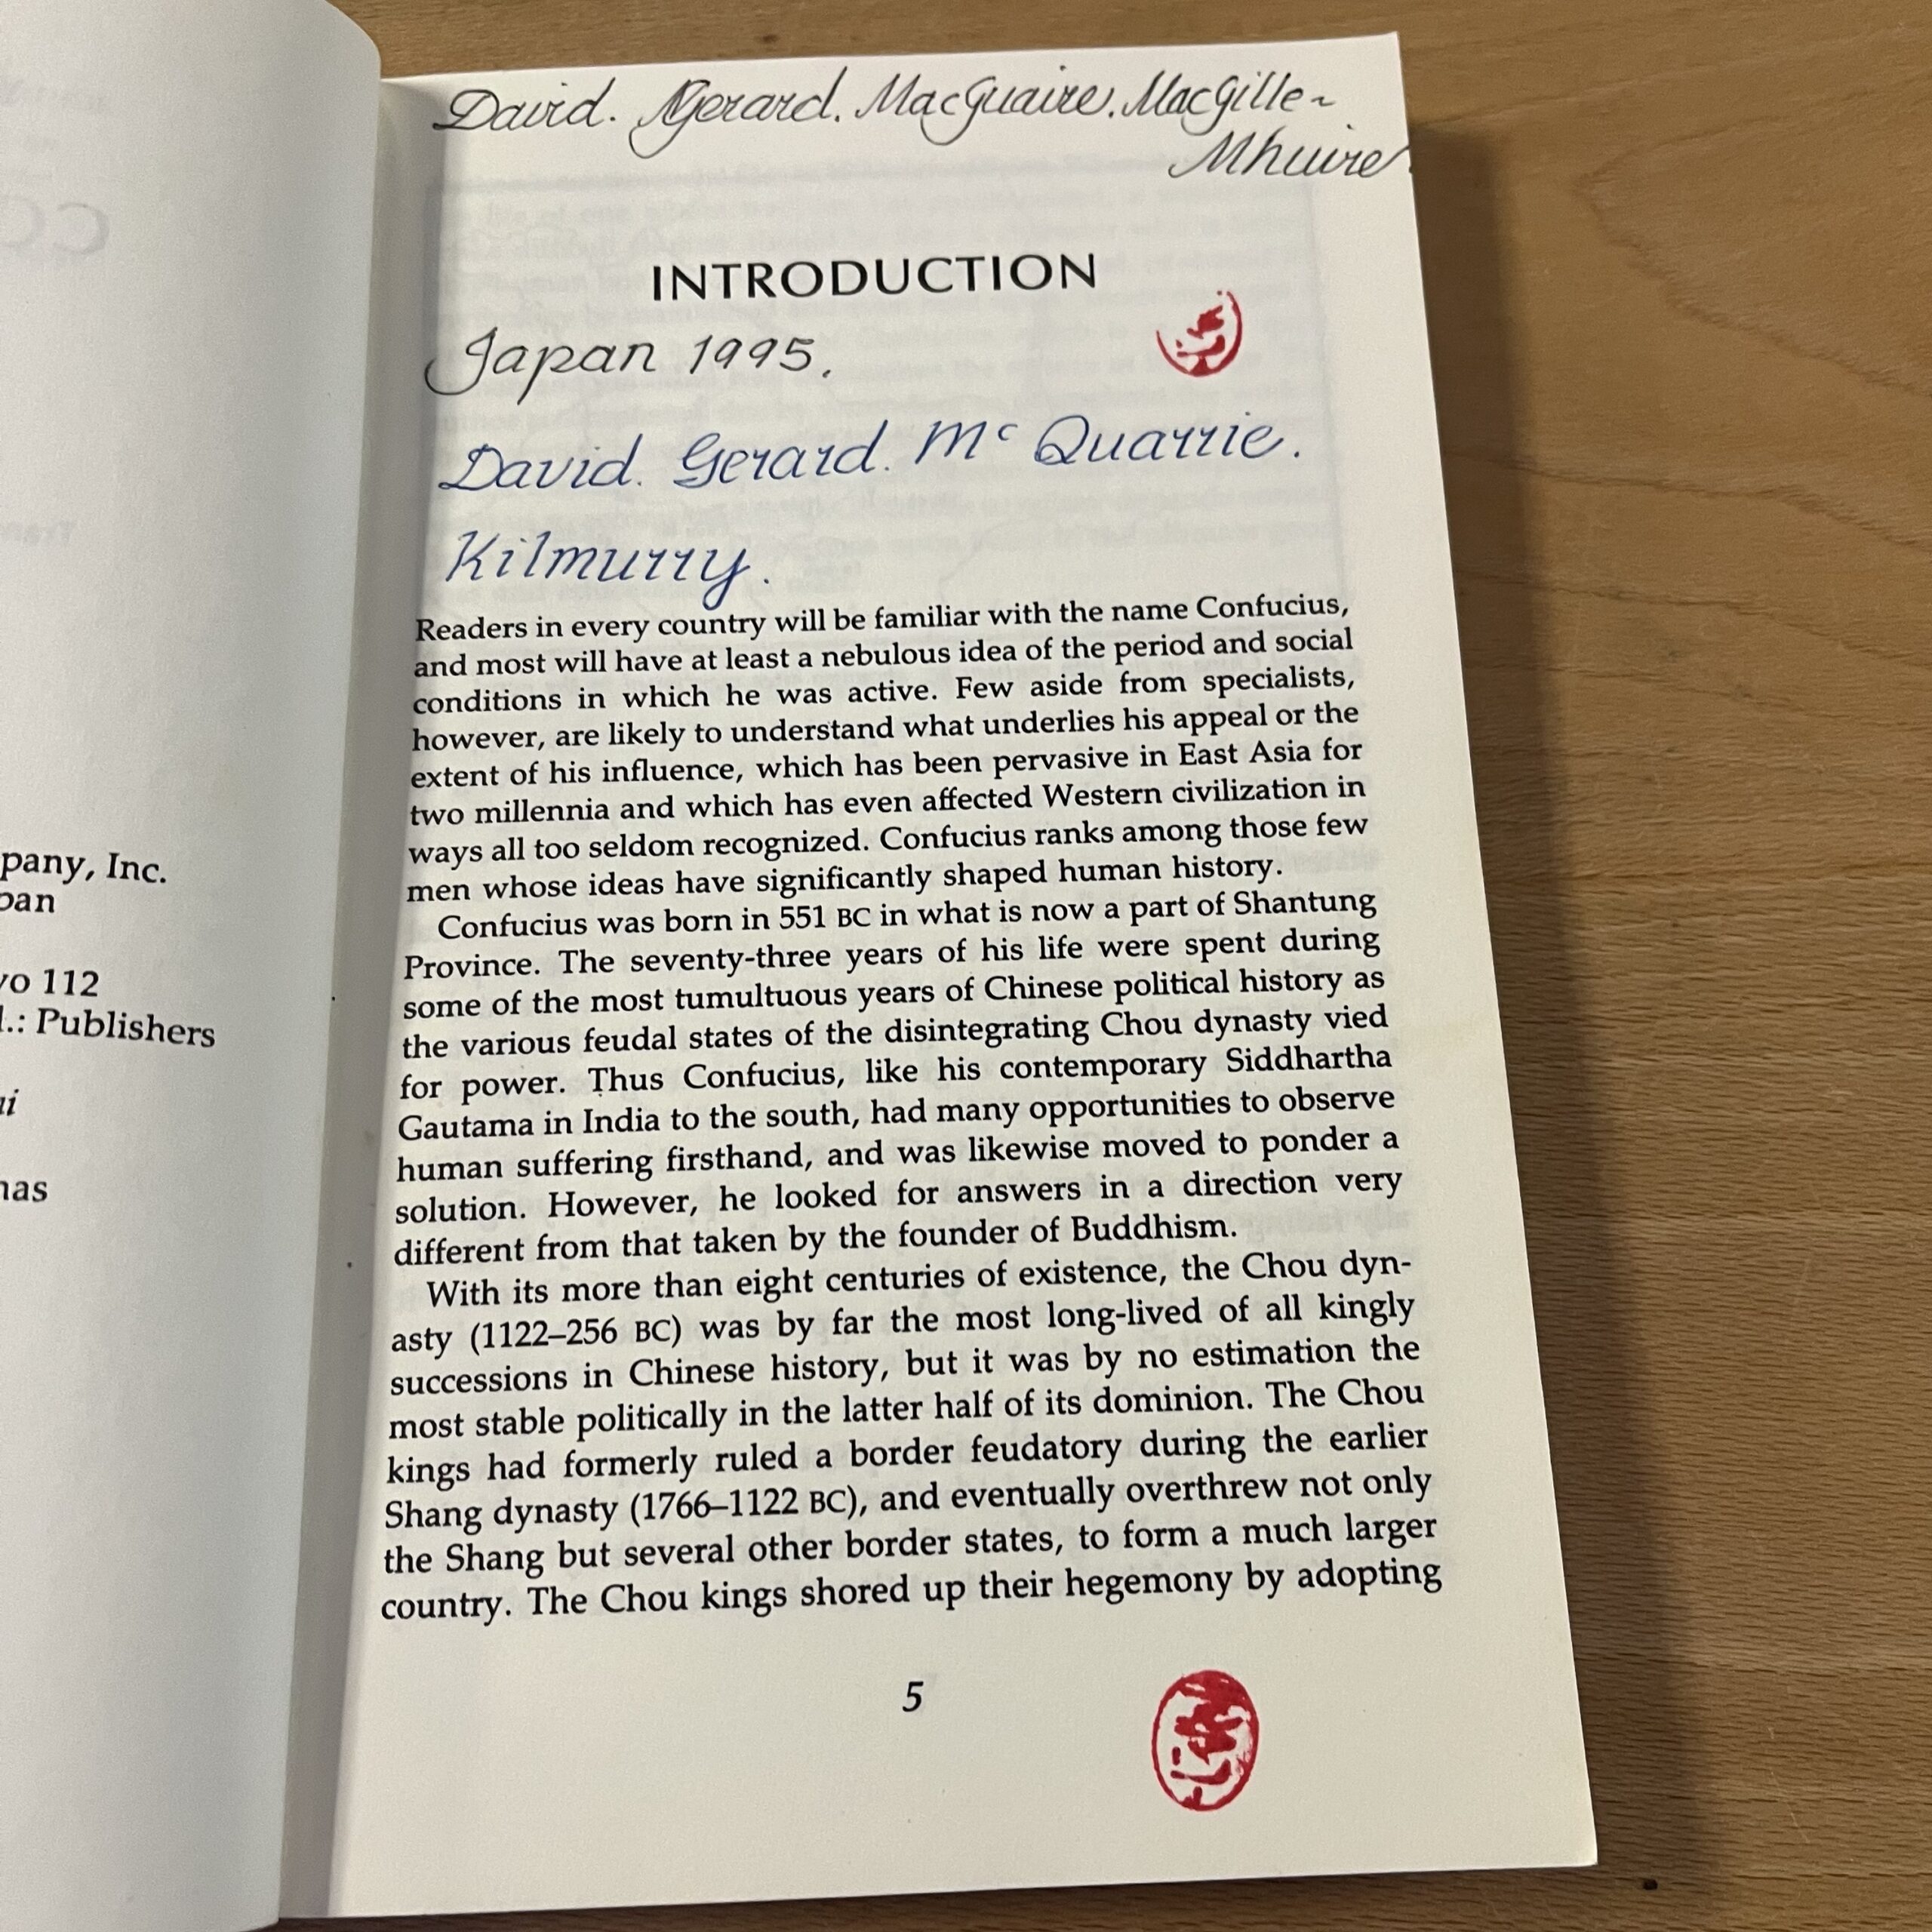 pany, Inc.
pan
yo 112
l.: Publishers
ui
nas
David. Gerard. MacGuaire. MacGille~
Mhuire.
INTRODUCTION
Japan 1995.
David. Gerard. Mc Quarrie.
Kilmurry.
Readers in every country will be familiar with the name Confucius,
and most will have at least a nebulous idea of the period and social
conditions in which he was active. Few aside from specialists,
however, are likely to understand what underlies his appeal or the
extent of his influence, which has been pervasive in East Asia for
two millennia and which has even affected Western civilization in
ways all too seldom recognized. Confucius ranks among those few
men whose ideas have significantly shaped human history.
Confucius was born in 551 BC in what is now a part of Shantung
Province. The seventy-three years of his life were spent during
some of the most tumultuous years of Chinese political history as
the various feudal states of the disintegrating Chou dynasty vied
for power. Thus Confucius, like his contemporary Siddhartha
Gautama in India to the south, had many opportunities to observe
human suffering firsthand, and was likewise moved to ponder a
solution. However, he looked for answers in a direction very
different from that taken by the founder of Buddhism.
With its more than eight centuries of existence, the Chou dyn-
asty (1122–256 BC) was by far the most long-lived of all kingly
successions in Chinese history, but it was by no estimation the
most stable politically in the latter half of its dominion. The Chou
kings had formerly ruled a border feudatory during the earlier
Shang dynasty (1766–1122 BC), and eventually overthrew not only
the Shang but several other border states, to form a much larger
country. The Chou kings shored up their hegemony by adopting
5